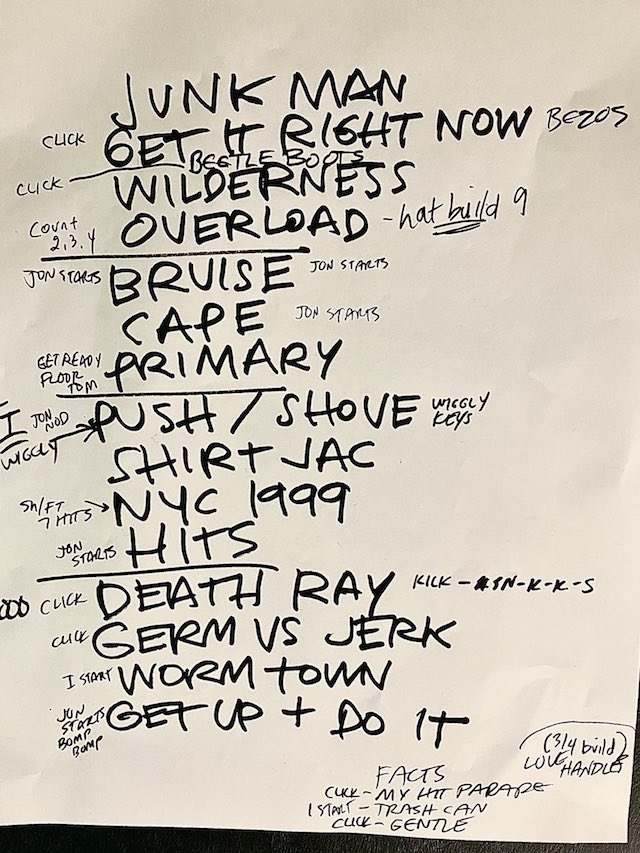 JUNK MAN
CLICK GET IT RIGHT NOW BEZOS
BEETLE BOOTS
CLICK WILDERNESS
COUNT 2,3,4 OVERLOAD - hat build 9
JON STARTS BRUISE JON STARTS
CAPE JON STARTS
GET READY FLOOR TOM PRIMARY
I JON NOD WIGGLY PUSH / SHOVE WIGGLY KEYS
SHIRT JAC
SHIFT 7 HITS NYC 1999
JON STARTS HITS
CLICK DEATH RAY KICK - SN-K-K-S
CLICK GERM VS JERK
I START WORM TOWN
JON STARTS BOMP BOMP GET UP + DO IT
(3/4 build)
LOVE HANDLES
FACTS
CLICK - MY HIT PARADE
I START - TRASH CAN
CLICK - GENTLE